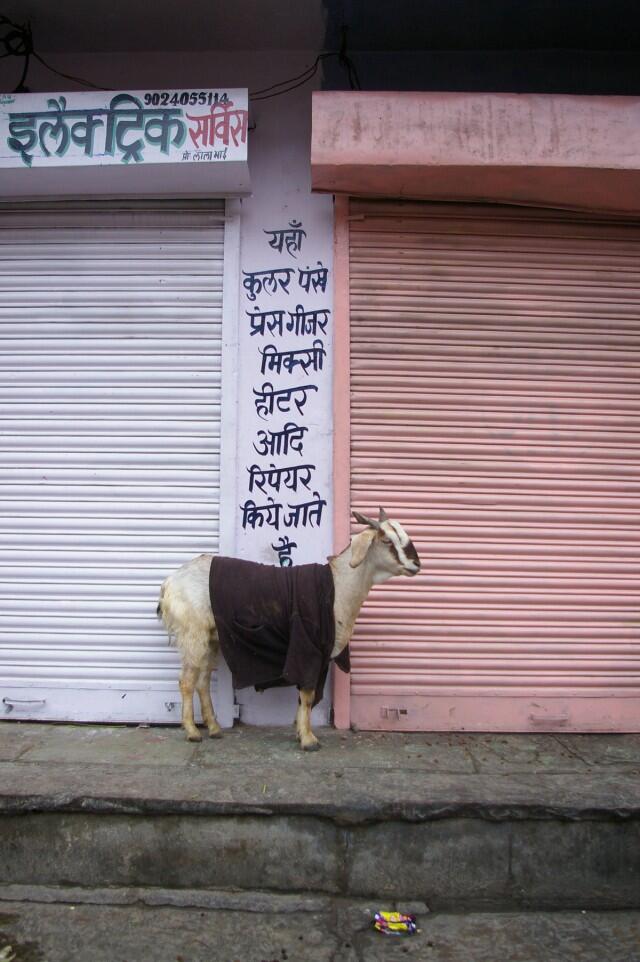 9024055114
इलैक्ट्रिक सर्विस
प्रो. लाला भाई
यहाँ
कुलर पंखे
प्रेस गीजर
मिक्सी
हीटर
आदि
रिपेयर
किये जाते
है